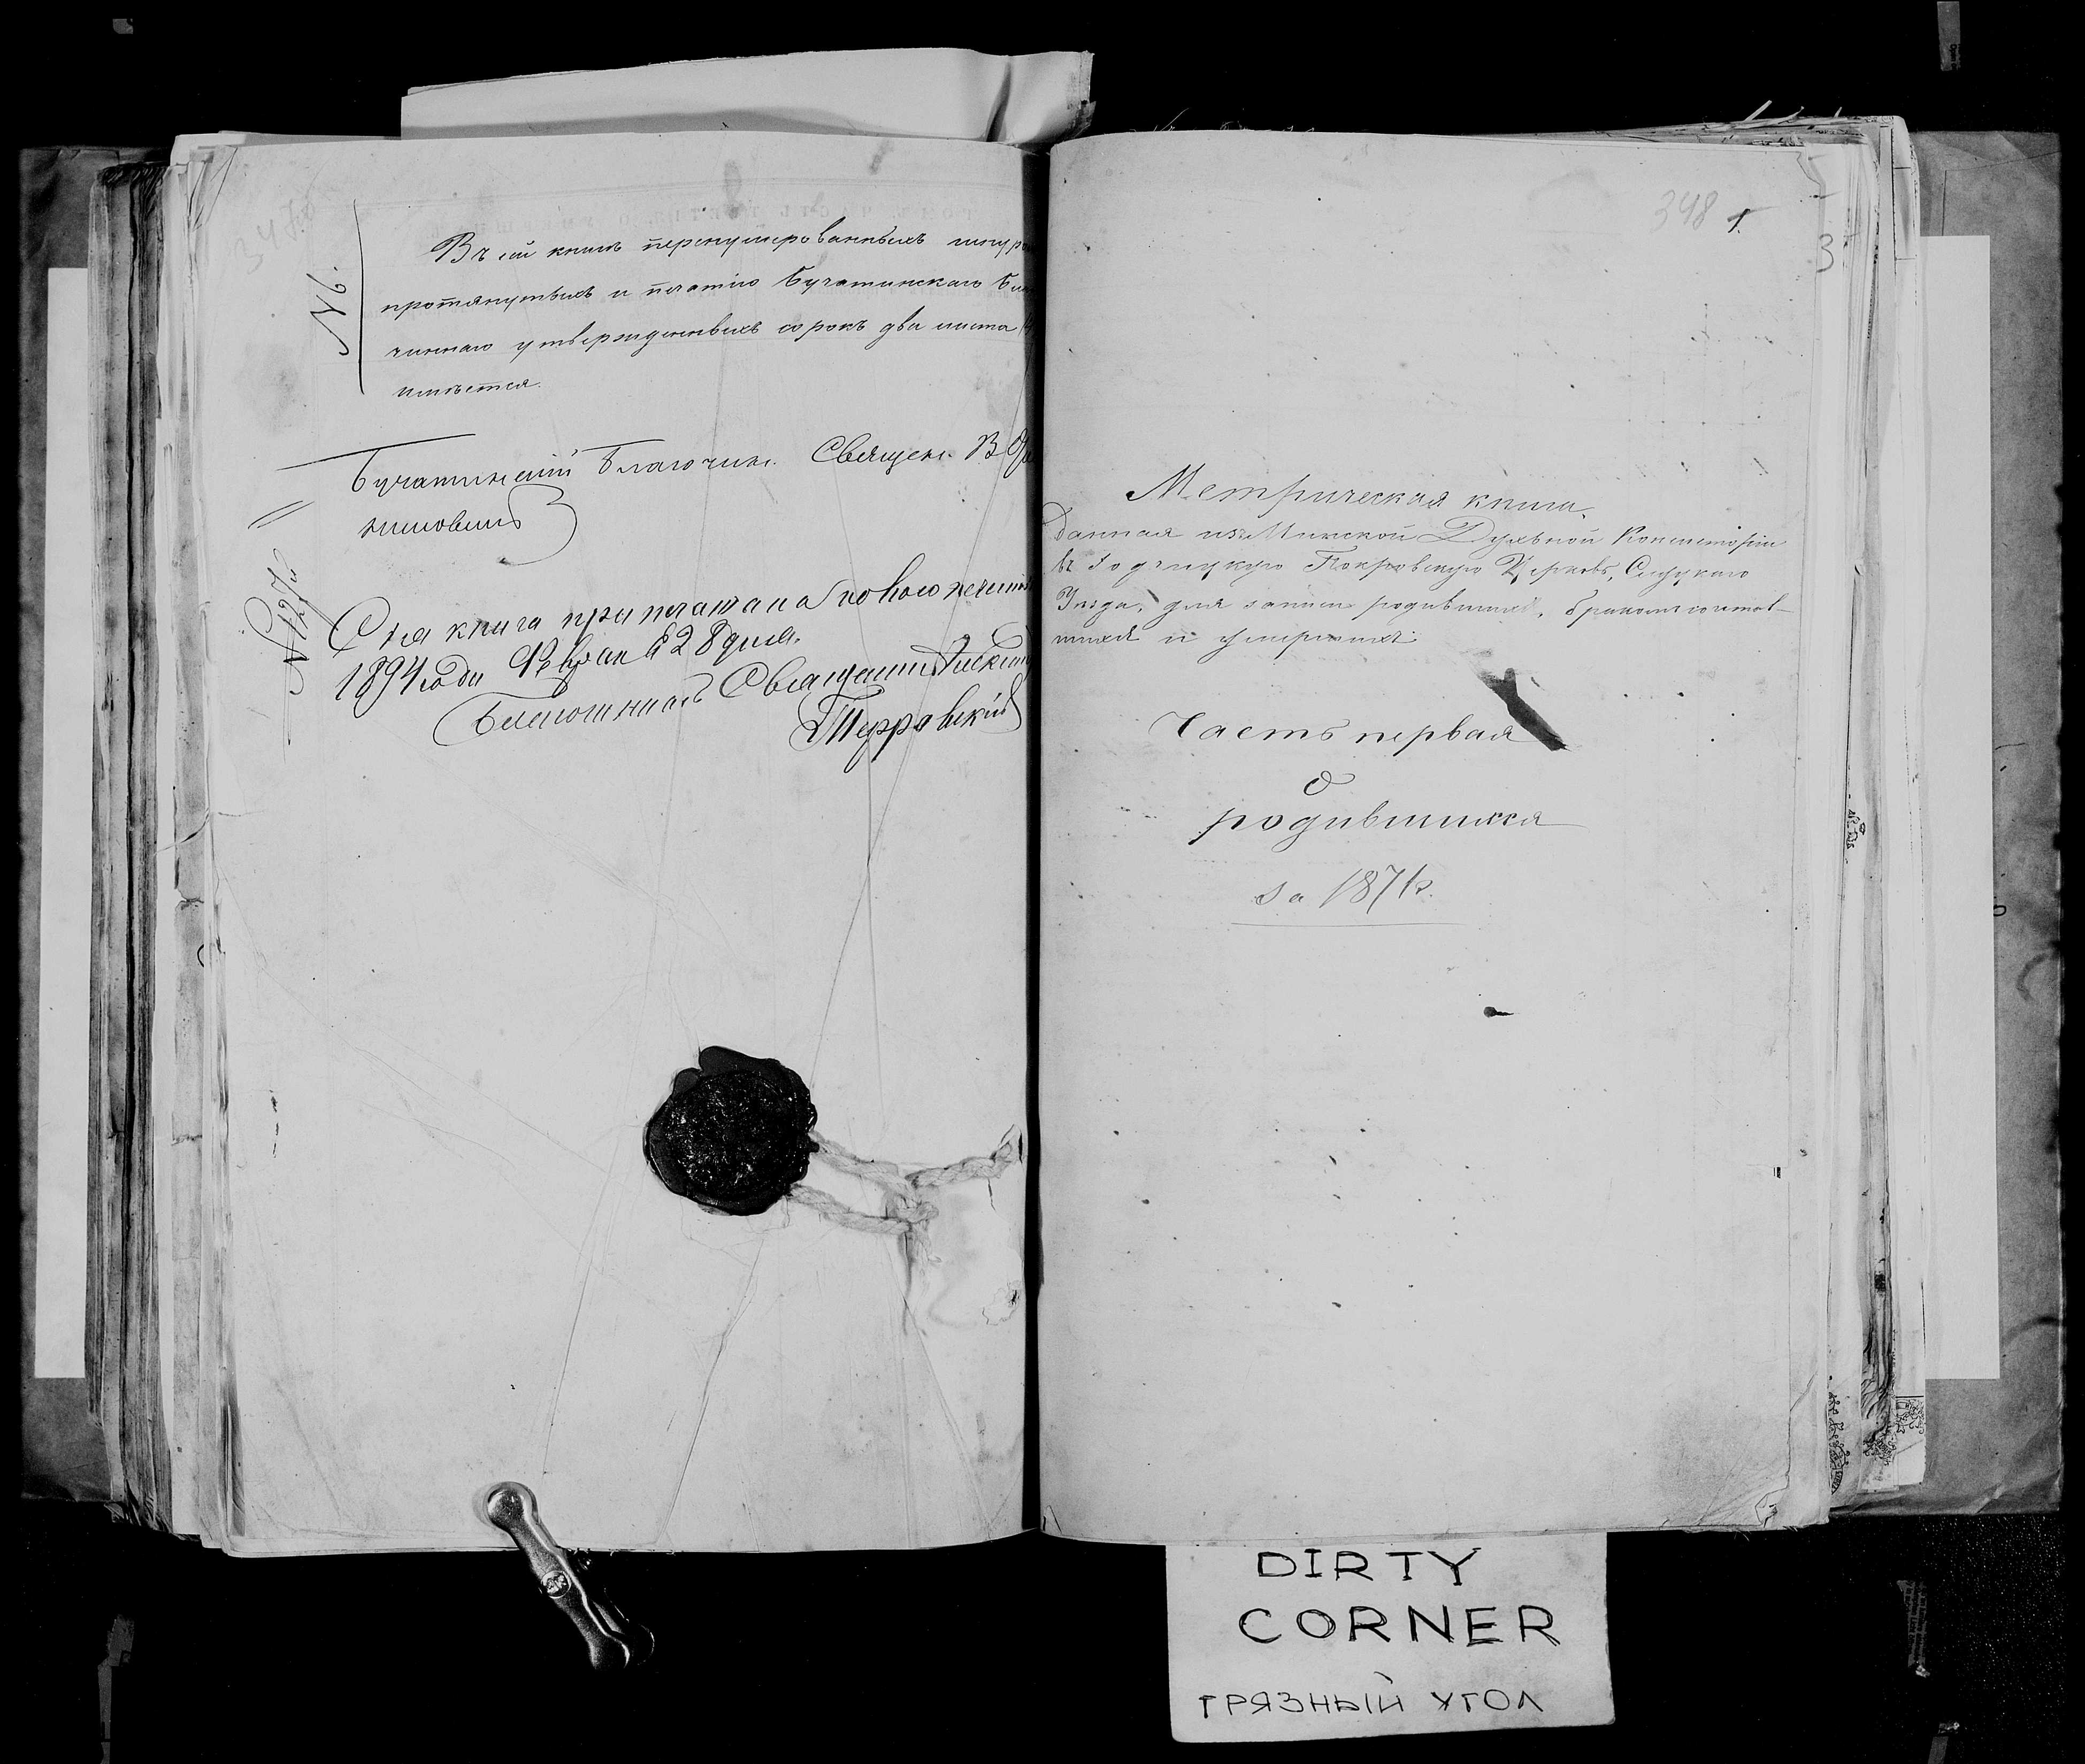 347 об
№ 6.
Въ сей книгѣ перенумерованныхъ шнуро
протянутыхъ и печатію Бучатинскаго Бла
чиннаго утвержденныхъ сорокъ два листа
имѣется.
Бучатинскій Благочин. Священ. В
Сія книга припечатана новою печатью
1894 года Февраля 28 дня.
Благочинный Священник
Терравскій
348 1
3
Метрическая книга,
данная изъ Минской Духовной Консисторіи
въ Покровскую Церковь, Слуцкаго
Уѣзда, для записи родившихся, бракомъ сочетав-
шихся и умершихъ.
Часть первая
о
родившихся
за 1871 г.
DIRTY
CORNER
ГРЯЗНЫЙ УГОЛ